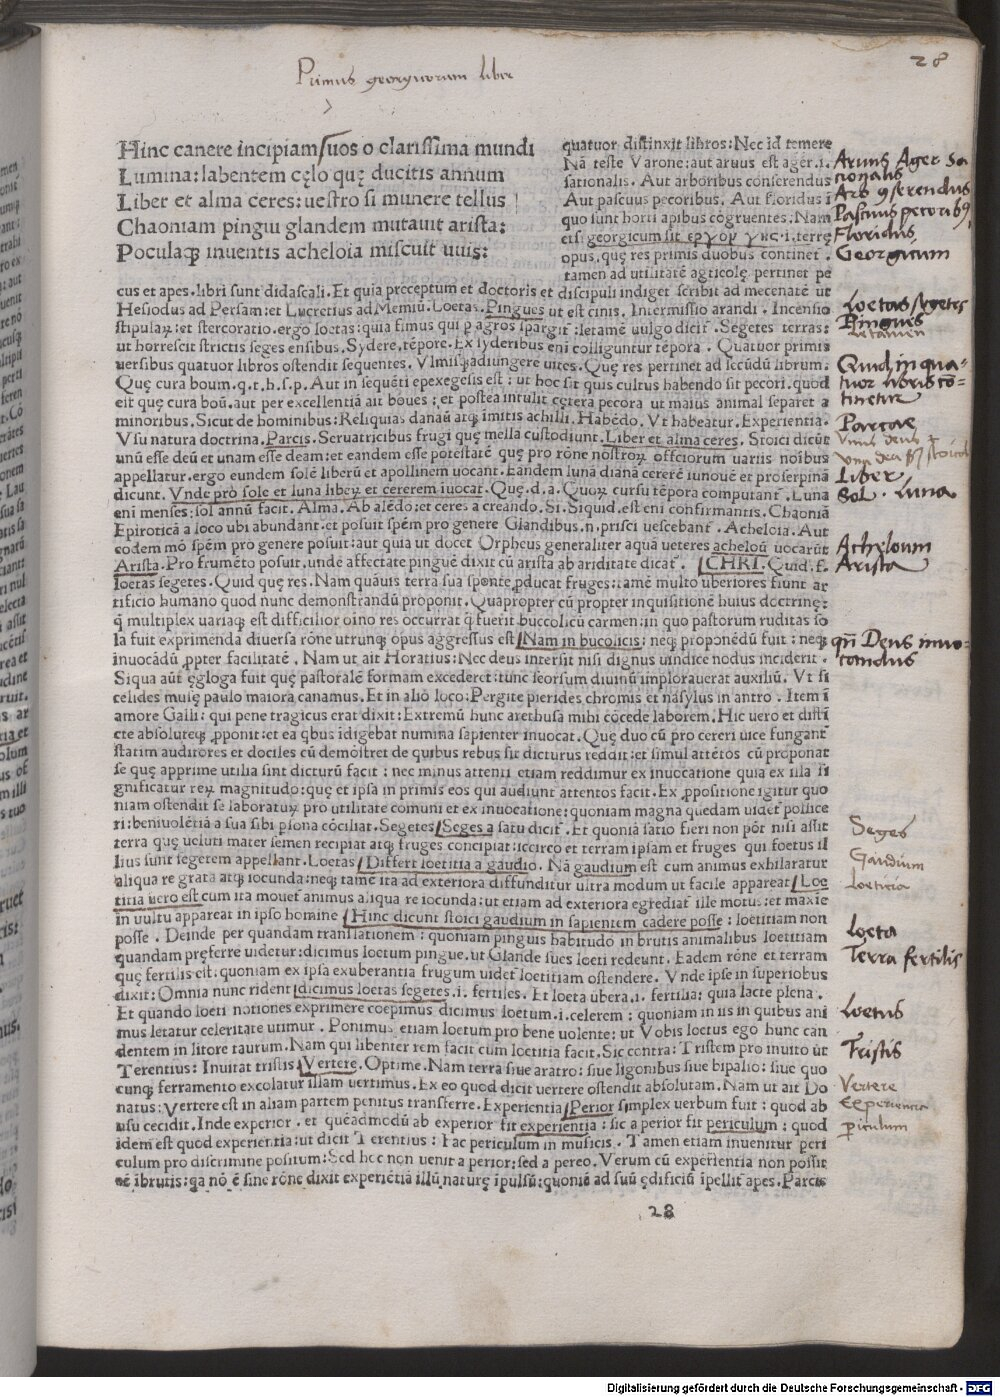 Primus georgicorum liber
28
Hinc canere incipiam uos o clarissima mundi
Lumina: labentem cęlo quę ducitis annum
Liber et alma ceres: uestro si munere tellus
Chaoniam pingui glandem mutauit arista:
Poculaqꝫ inuentis acheloia miscuit uuis:
quatuor distinxit libros: Nec id temere
Nā teste Varone: aut aruus est ager .i.
sationalis. Aut arboribus conserendus
Aut pascuus pecoribus. Aut floridus ī
quo sunt horti apibus cōgruentes. Nam
etsi georgicum sit εργον γης .i. terrę
opus, quę res primis duobus continet̃.
tamen ad utilitatē agricolę pertinet pe
cus et apes. libri sunt didascali. Et quia pręceptum et doctoris et discipuli indiget scribit ad mecenatē ut
Hesiodus ad Persam: et Lucretius ad Memiū. Loetas. Pingues ut est cinis. Intermissio arandi. Incensio
stipulaꝝ: et stercoratio. ergo loetas: quia fimus qui p agros spargit̃: letamē uulgo dicit̃. Segetes terras:
ut horrescit strictis seges ensibus. Sydere, tēpore. Ex syderibus eni colliguntur tēpora. Quatuor primis
uersibus quatuor libros ostendit sequentes. Vlmisqꝫ adiungere uites. Quę res pertinet ad secūdū librum:
Quę cura boum. q. t. h. s. p. Aut in sequēti epexegesis est: ut hoc sit quis cultus habendo sit pecori. quod
eit quę cura boū. aut per excellentiā ait boues: et postea intulit cętera pecora ut maius animal separet a
minoribus. Sicut de hominibus: Reliquias danaū atqꝫ īmitis achilli. Habēdo. Vt habeatur. Experientia.
Vsu natura doctrina. Parcis. Seruatricibus frugi quę mella custodiunt. Liber et alma ceres. Stoici dicūt
unū esse deū et unam esse deam: et eandem esse potestatē quę pro rōne nostroꝝ offciorum uariis noībus
appellatur. ergo eundem solē liberū et apollinem uocant. Eandem lunā dianā cererē iunouē et proserpinā
dicunt. Vnde pro sole et luna liberꝫ et cererem iuocat. Quę. d. a. Quoꝝ cursu tēpora computant̃. Luna
eni menses: sol annū facit. Alma. Ab alēdo: et ceres a creando. Si. Siquid. est eni confirmantis. Chaoniā
Epiroticā a loco ubi abundant. et posuit spēm pro genere Glandibus. n. prisci uescebant̃. Acheloia. Aut
eodem mō spēm pro genere posuit: aut quia ut docet Orpheus generaliter aquā ueteres acheloū uocarūt
Arista. Pro frumēto posuit. unde affectate pinguē dixit cū arista ab ariditate dicat̃. CHRI. Quid. f.
loetas segetes. Quid quę res. Nam quāuis terra sua sponte producat fruges: tamē multo uberiores fiunt ar
tificio humano quod nunc demonstrandū proponit. Quapropter cū propter inquisitionē huius doctrinę:
q̄ multiplex uariaqꝫ est difficilior oīno res occurrat q̄ fuerit buccolicū carmen: in quo pastorum ruditas so
la fuit exprimenda diuersa rōne utrunqꝫ opus aggressus est Nam in bucolicis: neqꝫ proponēdū fuit: neqꝫ
inuocādū propter facilitatē. Nam ut ait Horatius: Nec deus intersit nisi dignus uindice nodus inciderit.
Siqua aūt ęgloga fuit quę pastoralē formam excederet: tunc seorsum diuinū implorauerat auxiliū. Vt si
celides muię paulo maiora canamus. Et in alio loco: Pergite pierides chromis et nasylus in antro. Item ī
amore Galli: qui pene tragicus erat dixit: Extremū hunc arethusa mihi cōcede laborem. Hic uero et disti
cte absoluteqꝫ proponit: et ea qbus īdigebat numina sapienter inuocat. Quę duo cū pro cereri uice fungant̃
statim auditores et dociles cū demōstret de quibus rebus sit dicturus reddit: et simul attētos cū proponat
se quę apprime utilia sint dicturū facit: nec minus attenti etiam reddimur ex inuocatione quia ex illa si
gnificatur reꝝ magnitudo: quę et ipsa in primis eos qui audiunt attentos facit. Ex propositione igitur quo
niam ostendit se laboratuꝝ pro utilitate comuni et ex inuocatione: quoniam magna quędam uidet̃ pollice
ri: beniuolētiā a sua sibi psona cōciliat. Segetes Seges a satu dicit̃. Et quoniā satio fieri non pōt nisi assit
terra quę ueluti mater semen recipiat atqꝫ fruges concipiat: iccirco et terram ipsam et fruges qui foetus il
lius sunt segetem appellant. Loetas Differt loetitia a gaudio. Nā gaudium est cum animus exhilaratur
aliqua re grata atqꝫ iocunda: neqꝫ tamē ita ad exteriora diffunditur ultra modum ut facile appareat Loe
titia uero est cum ita mouet̃ animus aliqua re iocunda: ut etiam ad exteriora egrediat̃ ille motus: et maxīe
in uultu appareat in ipso homine Hinc dicunt stoici gaudium in sapientem cadere posse: loetitiam non
posse. Deinde per quandam translationem: quoniam pinguis habitudo in brutis animalibus loetitiam
quandam pręferre uidetur: dicimus loetum pingue. ut Glande sues loeti redeunt. Eadem rōne et terram
quę fertilis est: quoniam ex ipsa exuberantia frugum uidet̃ loetitiam ostendere. Vnde ipse in superiobus
dixit: Omnia nunc rident dicimus loetas segetes .i. fertiles. Et loeta ubera .i. fertilia: quia lacte plena.
Et quando loeti notiones exprimere coepimus dicimus loetum .i. celerem: quoniam in iis in quibus ani
mus letatur celeritate utimur. Ponimus etiam loetum pro bene uolente: ut Vobis loetus ego hunc can
dentem in litore taurum. Nam qui libenter rem facit cum loetitia facit. Sic contra: Tristem pro inuito ut
Terentius: Inuitat tristis Vertere. Optime. Nam terra siue aratro: siue ligonibus siue bipalio: siue quo
cunqꝫ ferramento excolatur illam uertimus. Ex eo quod dicit uertere ostendit absolutam. Nam ut ait Do
natus: Vertere est in aliam partem penitus transferre. Experientia Perior simplex uerbum fuit: quod ab
usu cecidit. Inde experior. et quēadmodū ab experior fit experientia: sic a perior fit periculum: quod
idem est quod experientia: ut dicit Terentius: Fac periculum in musicis. Tamen etiam inuenitur peri
culum pro discrimine positum: Sed hec non uenit a perior: sed a pereo. Verum cū experientia non possit
eē ībrutis: qa nō ē sine rōne dixit experiētiā illū naturę ipulsū: quoniē ad suū ędificiū ipellit̃ apes. Parcis
28
Aruus Ager Sa
cionalis
Arb 9serendus
Pascuus pecorib9
Floridus
Georgicum
Loetas segetes
Pingues
Letamen
Quid in qua-
tuor libris co-
tinetur
Parcae
Vnus deus et
Vna dea stoicis
Liber
Sol. Luna
Acheloum
Arista
qn Deus inuo-
candus
Seges
Gaudium
Loeticia
Loeta
Terra fertilis
Loetus
Tristis
Vertere
Experiencia
periculum
Digitalisierung gefördert durch die Deutsche Forschungsgemeinschaft - DFG